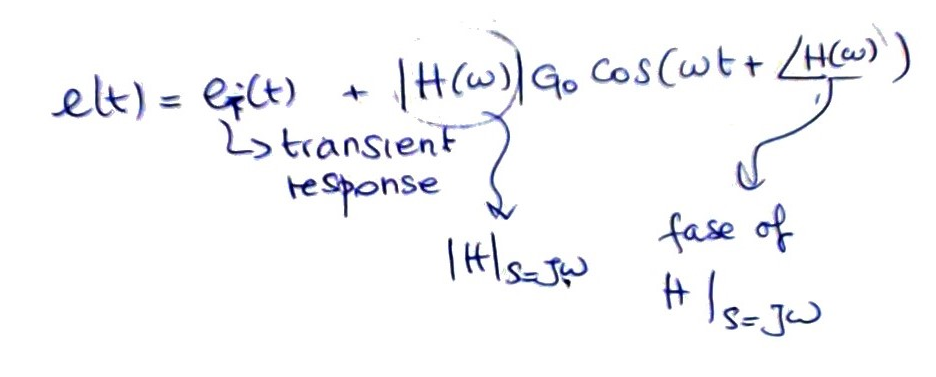 e(t) = e_T(t) + |H(ω)| G₀ cos(ωt + ∠H(ω))
↳ transient
response
|H|_{s=jω}
fase of
H|_{s=jω}